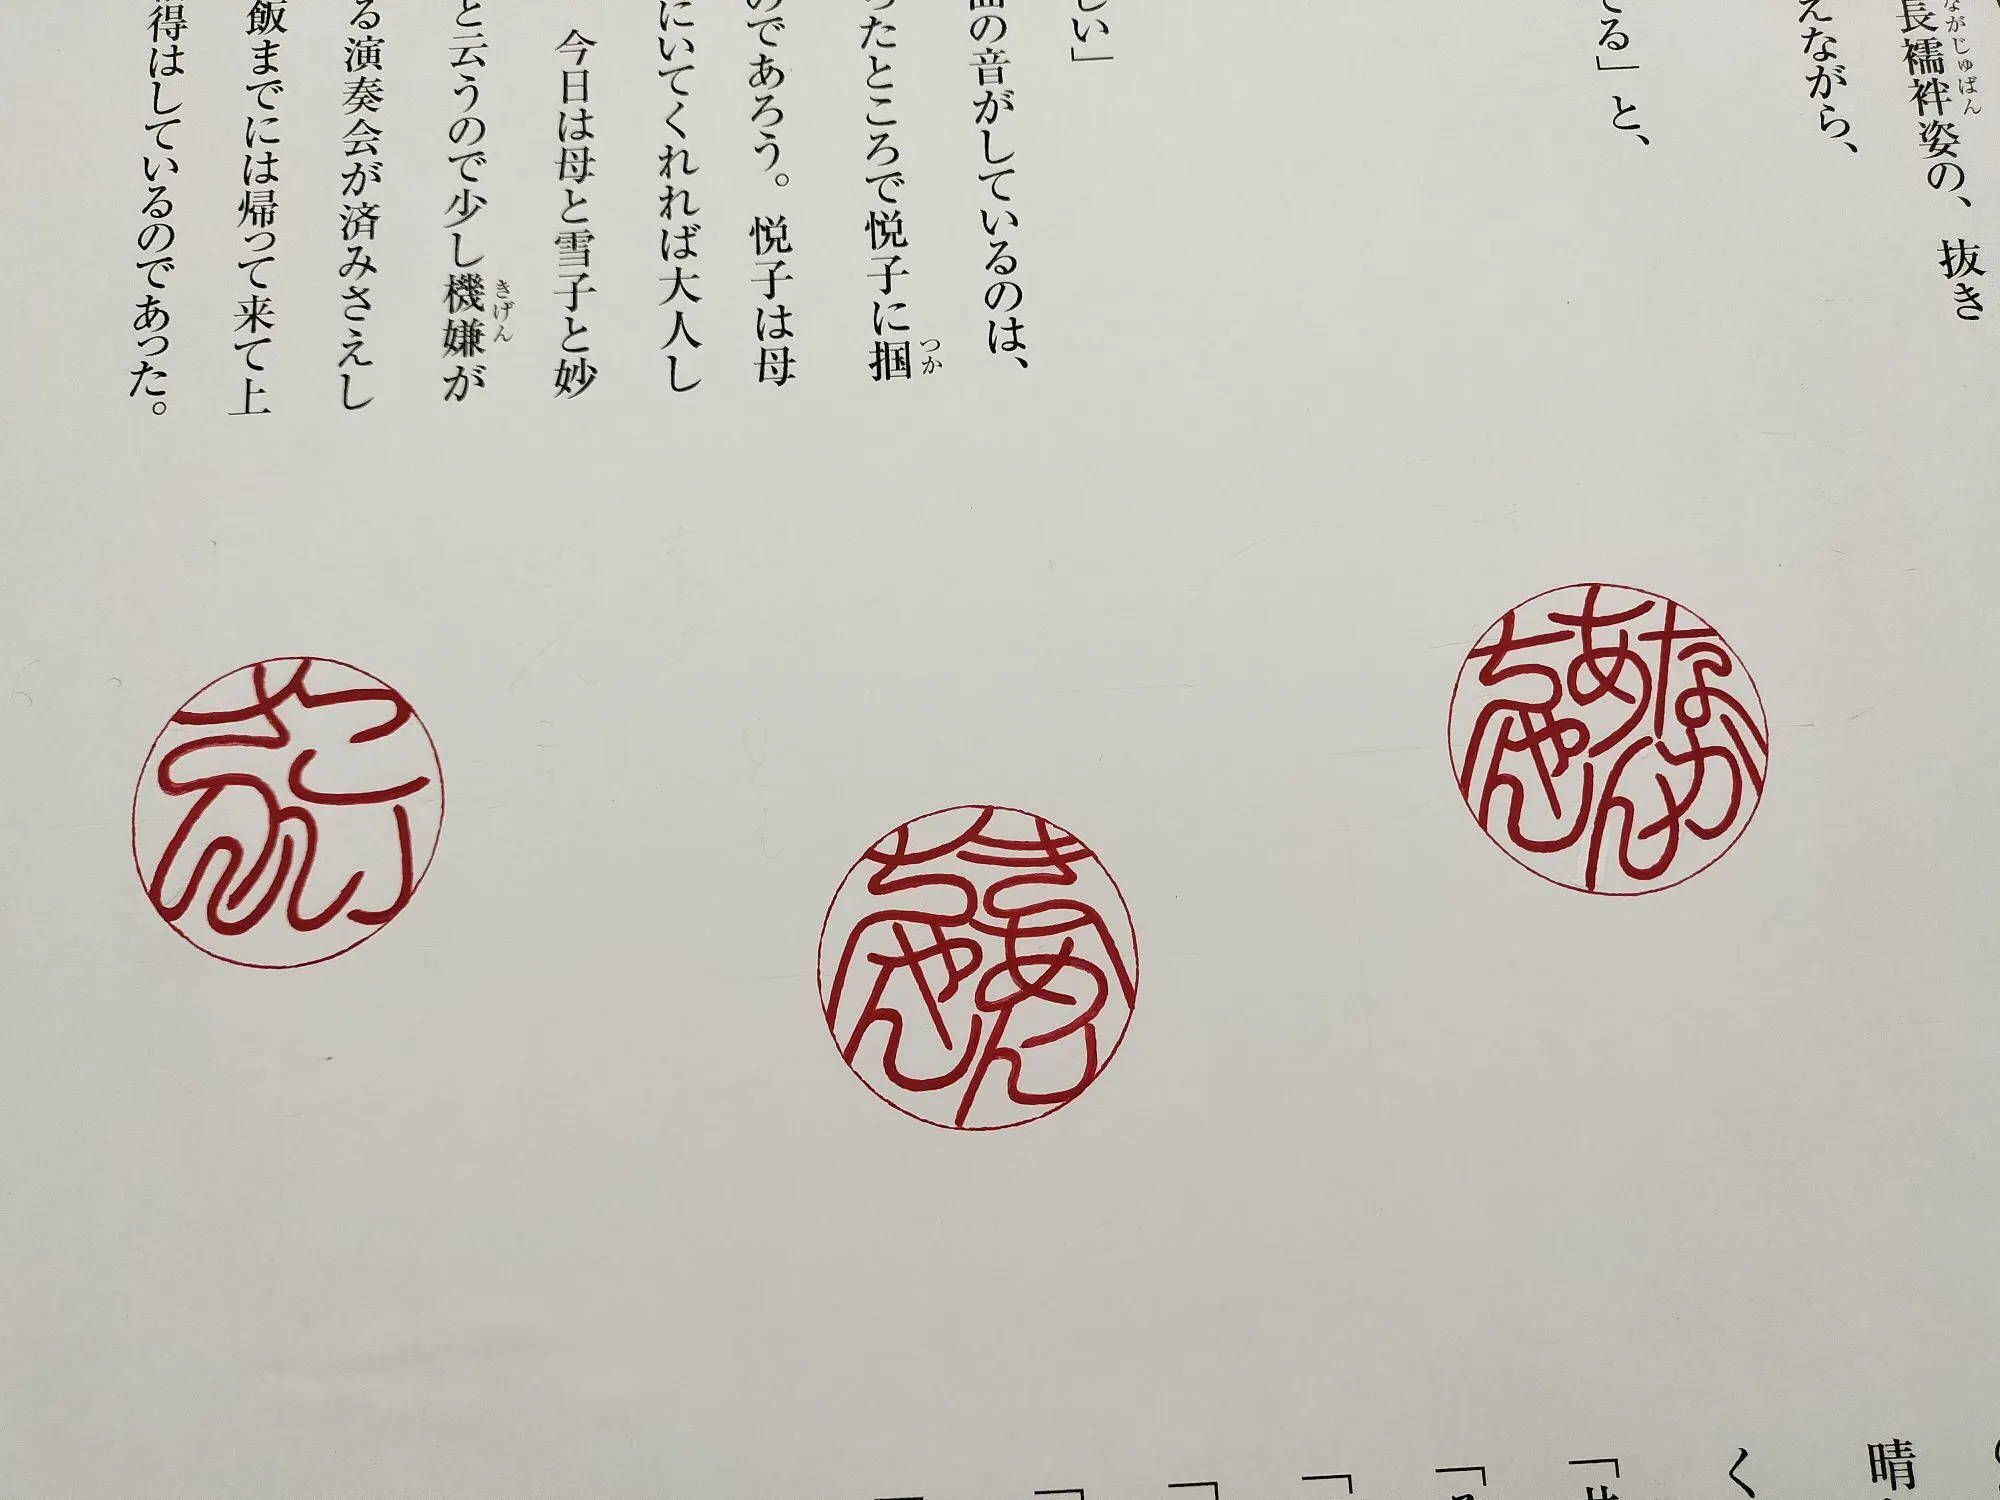 長襦袢姿の、抜き
ながじゅばん
えながら、
てる」と、
しい」
曲の音がしているのは、
ったところで悦子に掴
つか
のであろう。悦子は母
にいてくれれば大人し
今日は母と雪子と妙
と云うので少し機嫌が
きげん
る演奏会が済みさえし
飯までには帰って来て上
得はしているのであった。
なかあんちゃん
きあんちゃん
こいさん
晴
く